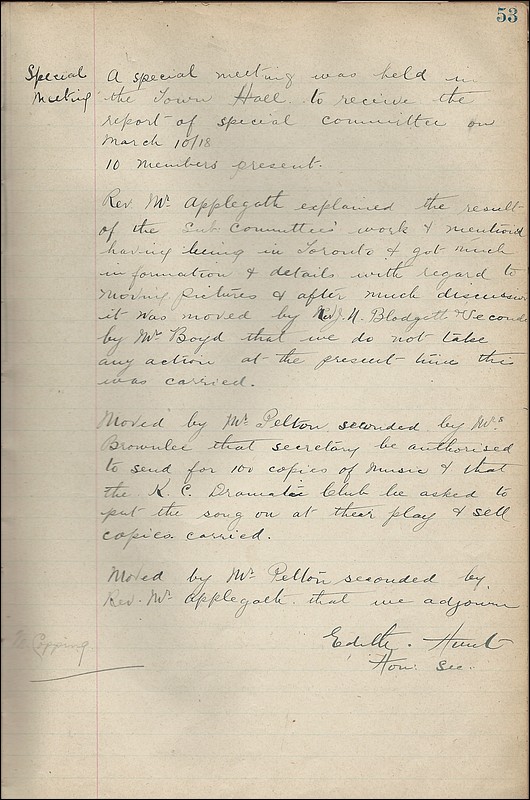 53
Special Meeting
A special meeting was held in
the Town Hall. to receive the
report of special committee on
March 10/18
10 members present.
Rev. Mr. Applegath explained the result
of the Sub. Committee's work & mentioned
having being in Toronto & got much
information & details with regard to
moving pictures & after much discussion
it was moved by N. Blodgett & seconded
by Mr. Boyd that we do not take
any action at the present time this
was carried.
Moved by Mr. Pelton seconded by Mrs
Brownlee that secretary be authorised
to send for 100 copies of Music & that
the K. C. Dramatic Club be asked to
put the song on at their play & sell
copies. carried.
Moved by Mr. Pelton seconded by
Rev. Mr. Applegath. that we adjourn
Edith. Hunt
Hon. Sec.
Copping.